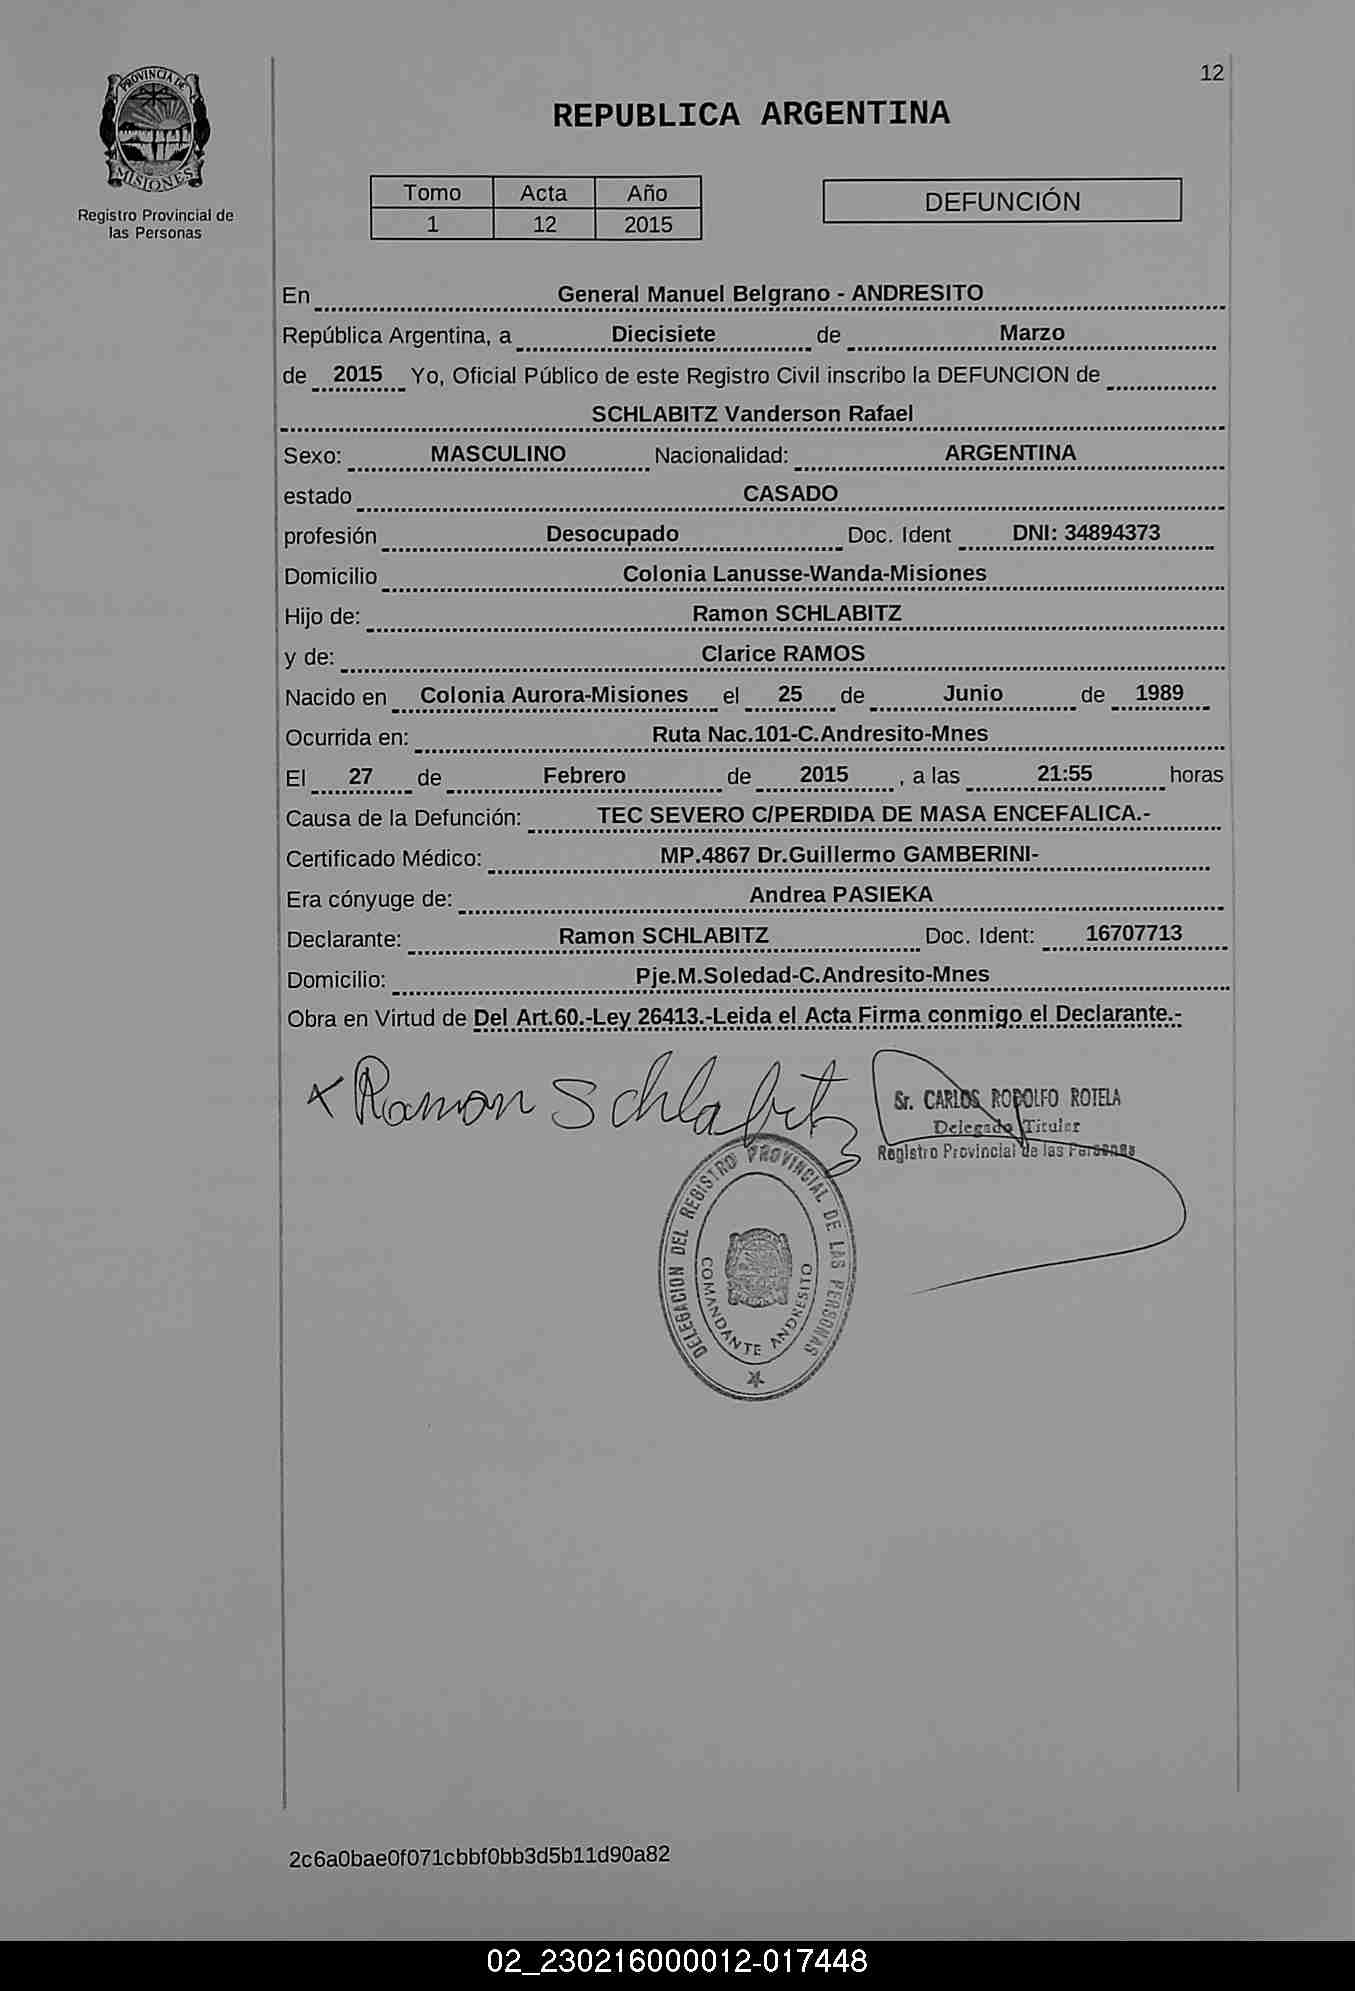 12
PROVINCIA DE
MISIONES
Registro Provincial de
las Personas
REPUBLICA ARGENTINA
Tomo Acta Año
1 12 2015
DEFUNCIÓN
En General Manuel Belgrano - ANDRESITO
República Argentina, a Diecisiete de Marzo
de 2015 Yo, Oficial Público de este Registro Civil inscribo la DEFUNCION de
SCHLABITZ Vanderson Rafael
Sexo: MASCULINO Nacionalidad: ARGENTINA
estado CASADO
profesión Desocupado Doc. Ident DNI: 34894373
Domicilio Colonia Lanusse-Wanda-Misiones
Hijo de: Ramon SCHLABITZ
y de: Clarice RAMOS
Nacido en Colonia Aurora-Misiones el 25 de Junio de 1989
Ocurrida en: Ruta Nac.101-C.Andresito-Mnes
El 27 de Febrero de 2015 , a las 21:55 horas
Causa de la Defunción: TEC SEVERO C/PERDIDA DE MASA ENCEFALICA.-
Certificado Médico: MP.4867 Dr.Guillermo GAMBERINI-
Era cónyuge de: Andrea PASIEKA
Declarante: Ramon SCHLABITZ Doc. Ident: 16707713
Domicilio: Pje.M.Soledad-C.Andresito-Mnes
Obra en Virtud de Del Art.60.-Ley 26413.-Leida el Acta Firma conmigo el Declarante.-
x Ramon Schlabitz
Sr. CARLOS RODOLFO ROTELA
Delegado Titular
Registro Provincial de las Personas
DELEGACION DEL REGISTRO PROVINCIAL DE LAS PERSONAS
COMANDANTE ANDRESITO
2c6a0bae0f071cbbf0bb3d5b11d90a82
02_230216000012-017448